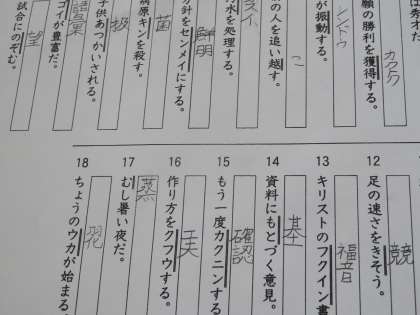 は秀才た
願の勝利を獲得する。
カクトク
が振動する。
シンドウ
の人を追い越す。
こ
水を処理する。
方針をセンメイにする。
鮮明
病原キンを殺す。
菌
子供あつかいされる。
扱
ゴイが豊富だ。
語彙
試合にのぞむ。
望
12
足の速さをきそう。
競
13
キリストのフクイン書
福音
14
資料にもとづく意見。
基
15
もう一度カクニンする
確認
16
作り方をクフウする。
工夫
17
むし暑い夜だ。
蒸
18
ちょうのウカが始まる。